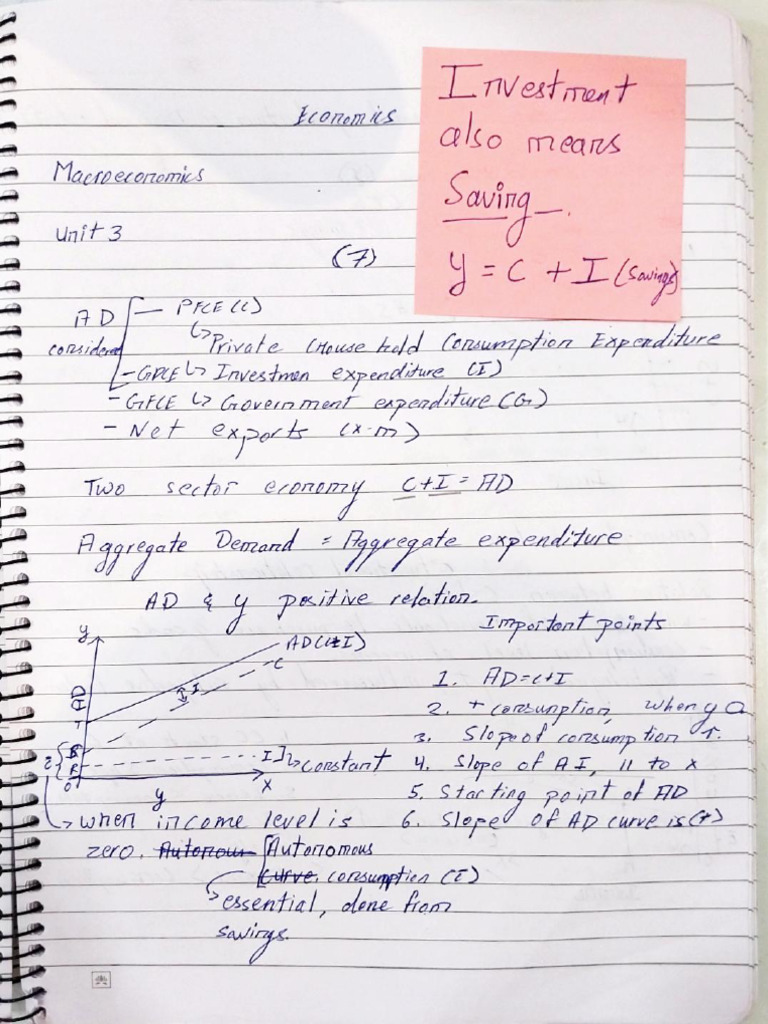 Economics
Investment
also means
Saving.
y = C + I (Savings)
Macroeconomics
Unit 3
(7)
AD
considered
PFCE (C)
↳ Private (Household Consumption Expenditure
- GPCE ↳ Investmen expenditure (I)
- GFCE ↳ Government expenditure (G)
- Net exports (x-m)
Two sector economy C+I = AD
Aggregate Demand = Aggregate expenditure
AD & y positive relation.
Important points
y
AD(C+I)
C
I
AD
T
R
O
I
Constant
y
X
1. AD=C+I
2. + consumption, when y
3. Slope of consumption ↑.
4. Slope of AI, 11 to x
5. Starting point of AD
6. Slope of AD curve is (+)
↳ when income level is
zero. Autonomous
curve. consumption (I)
↳ essential, done from
savings.